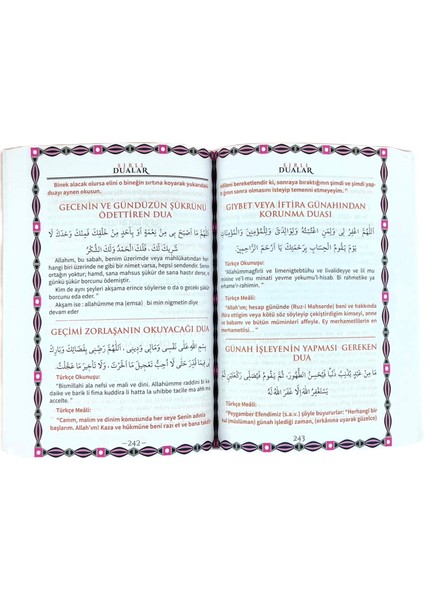 SIRLI
DUALAR
Binek alacak olursa elini o bineğin sırtına koyarak yukarıdaki
duayı aynen okusun.
GECENİN VE GÜNDÜZÜN ŞÜKRÜNÜ
ÖDETTİREN DUA
اَللّٰهُمَّ مَا أَصْبَحَ بِى مِنْ نِعْمَةٍ أَوْ بِأَحَدٍ مِنْ خَلْقِكَ فَمِنْكَ وَحْدَكَ لَا
شَرِيكَ لَكَ ـ فَلَكَ الْحَمْدُ وَلَكَ الشُّكْرُ
Allahım, bu sabah, benim üzerimde veya mahlûkatından her
hangi biri üzerinde ne gibi bir nimet varsa, hepsi sendendir. Senin
ortağın yoktur; hamd, sana mahsus şükür de sana hastır der,
günkü şükür ödetmiştir.
Kim de aynı şeyleri akşama erince söylerse o da o geceki şükür
borcunu eda eder. "
Akşam ise : allahümme ma (emsa) bi min nigmetin diye
devam eder
GEÇİMİ ZORLAŞANIN OKUYACAĞI DUA
بِسْمِ اللّٰهِ عَلَى نَفْسِى وَمَالِى وَدِينِى ـ اَللّٰهُمَّ رَضِّنِى بِقَضَائِكَ وَبَارِكْ
حَتَّى لَا أُحِبَّ تَعْجِيلَ مَا أَخَّرْتَ ـ وَلَا تَأْخِيرَ مَا عَجَّلْتَ
Türkçe Okunuşu:
"Bismillahi ala nefsi ve mali ve dini. Allahümme raddini bi
ve barik li fima kuddira li hatta la uhibbe tacile ma ahharte
accelte . "
Türkçe Meâli:
"Canım, malım ve dinim konusunda her şeye Senin adınla
başlarım. Allah'ım! Kaza ve hükmüne beni razı et ve bana
–242–
SIRLI
DUALAR
bereketlendir ki, sonraya bıraktığının şimdi ve şimdi yap-
tığının sonra olmasını isteyip temenni etmeyeyim. "
GIYBET VEYA İFTİRA GÜNAHINDAN
KORUNMA DUASI
اَللّٰهُمَّ اغْفِرْ لِى وَلِمَنِ اغْتَبْتُهُ وَلِوَالِدَىَّ وَلِلْمُؤْمِنِينَ وَالْمُؤْمِنَاتِ
يَوْمَ يَقُومُ الْحِسَابُ بِرَحْمَتِكَ يَا أَرْحَمَ الرَّاحِمِينَ
Türkçe Okunuşu:
"Allahümmağfirli ve limenigtebtühu ve livalideyye ve lil mu
minine vel muminati yevme yekumu'l-hisab. Bi rahmetike ya
erhame'r-rahimin. "
Türkçe Meâli:
"Allah'ım; hesap gününde (Ruz-i Mahserde) beni ve hakkında
iftira ettiğim veya kötü söz söyleyip çekiştirdiğim kimseyi, anne
ve babamı ve bütün müminleri affeyle. Ey merhametlilerin en
merhametlisi. "
GÜNAH İŞLEYENİN YAPMASI GEREKEN
DUA
مَا مِنْ عَبْدٍ يُذْنِبُ ذَنْبًا فَيُحْسِنُ الطُّهُورَ، ثُمَّ يَقُومُ فَيُصَلِّى رَكْعَتَيْنِ ثُمَّ
يَسْتَغْفِرُ اللّٰهَ إِلَّا غَفَرَ اللّٰهُ لَهُ
Türkçe Meâli:
"Peygamber Efendimiz (s.a.v.) şöyle buyururlar: "Herhangi bir
kul (müslüman) günah işlediği zaman, (erkânına uyarak güzelce)
243